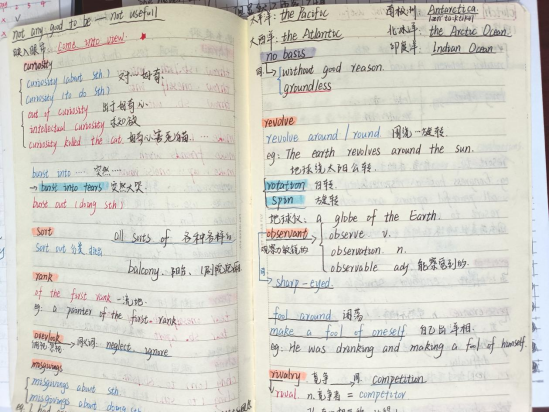 not any good to be — not usefull
映入眼帘 come into view:
curiosity
curiosity (about sth) 对…好奇
curiosity (to do sth)
out of curiosity 出于好奇心
intellectual curiosity 求知欲
curiosity killed the cat 好奇心害死猫
burst into … 突然…
→ burst into tears 突然大哭
burst out (doing sth)
sort all sorts of 各种各样的
sort out 分类
balcony. 阳台.
rank
of the first rank 一流地
eg: a painter of the first rank
overlook
同义词: neglect, ignore
misgivings
misgivings about sth
misgivings about doing
太平洋: the Pacific
大西洋: the Atlantic
南极洲: Antarctica
北冰洋: the Arctic Ocean
印度洋: Indian Ocean
no basis
without good reason.
groundless
revolve
revolve around / round 围绕…旋转
eg: The earth revolves around the sun.
地球绕太阳公转
rotation 自转
spin 旋转
地球仪: a globe of the Earth.
observant
观察力敏锐的
observe v.
observation n.
observable adj 能察觉到的
sharp-eyed.
fool around 闲荡
make a fool of oneself 自己出丑
eg. He was drinking and making a fool of himself.
rivalry 竞争 competition
rival n. 竞争者 = competitor